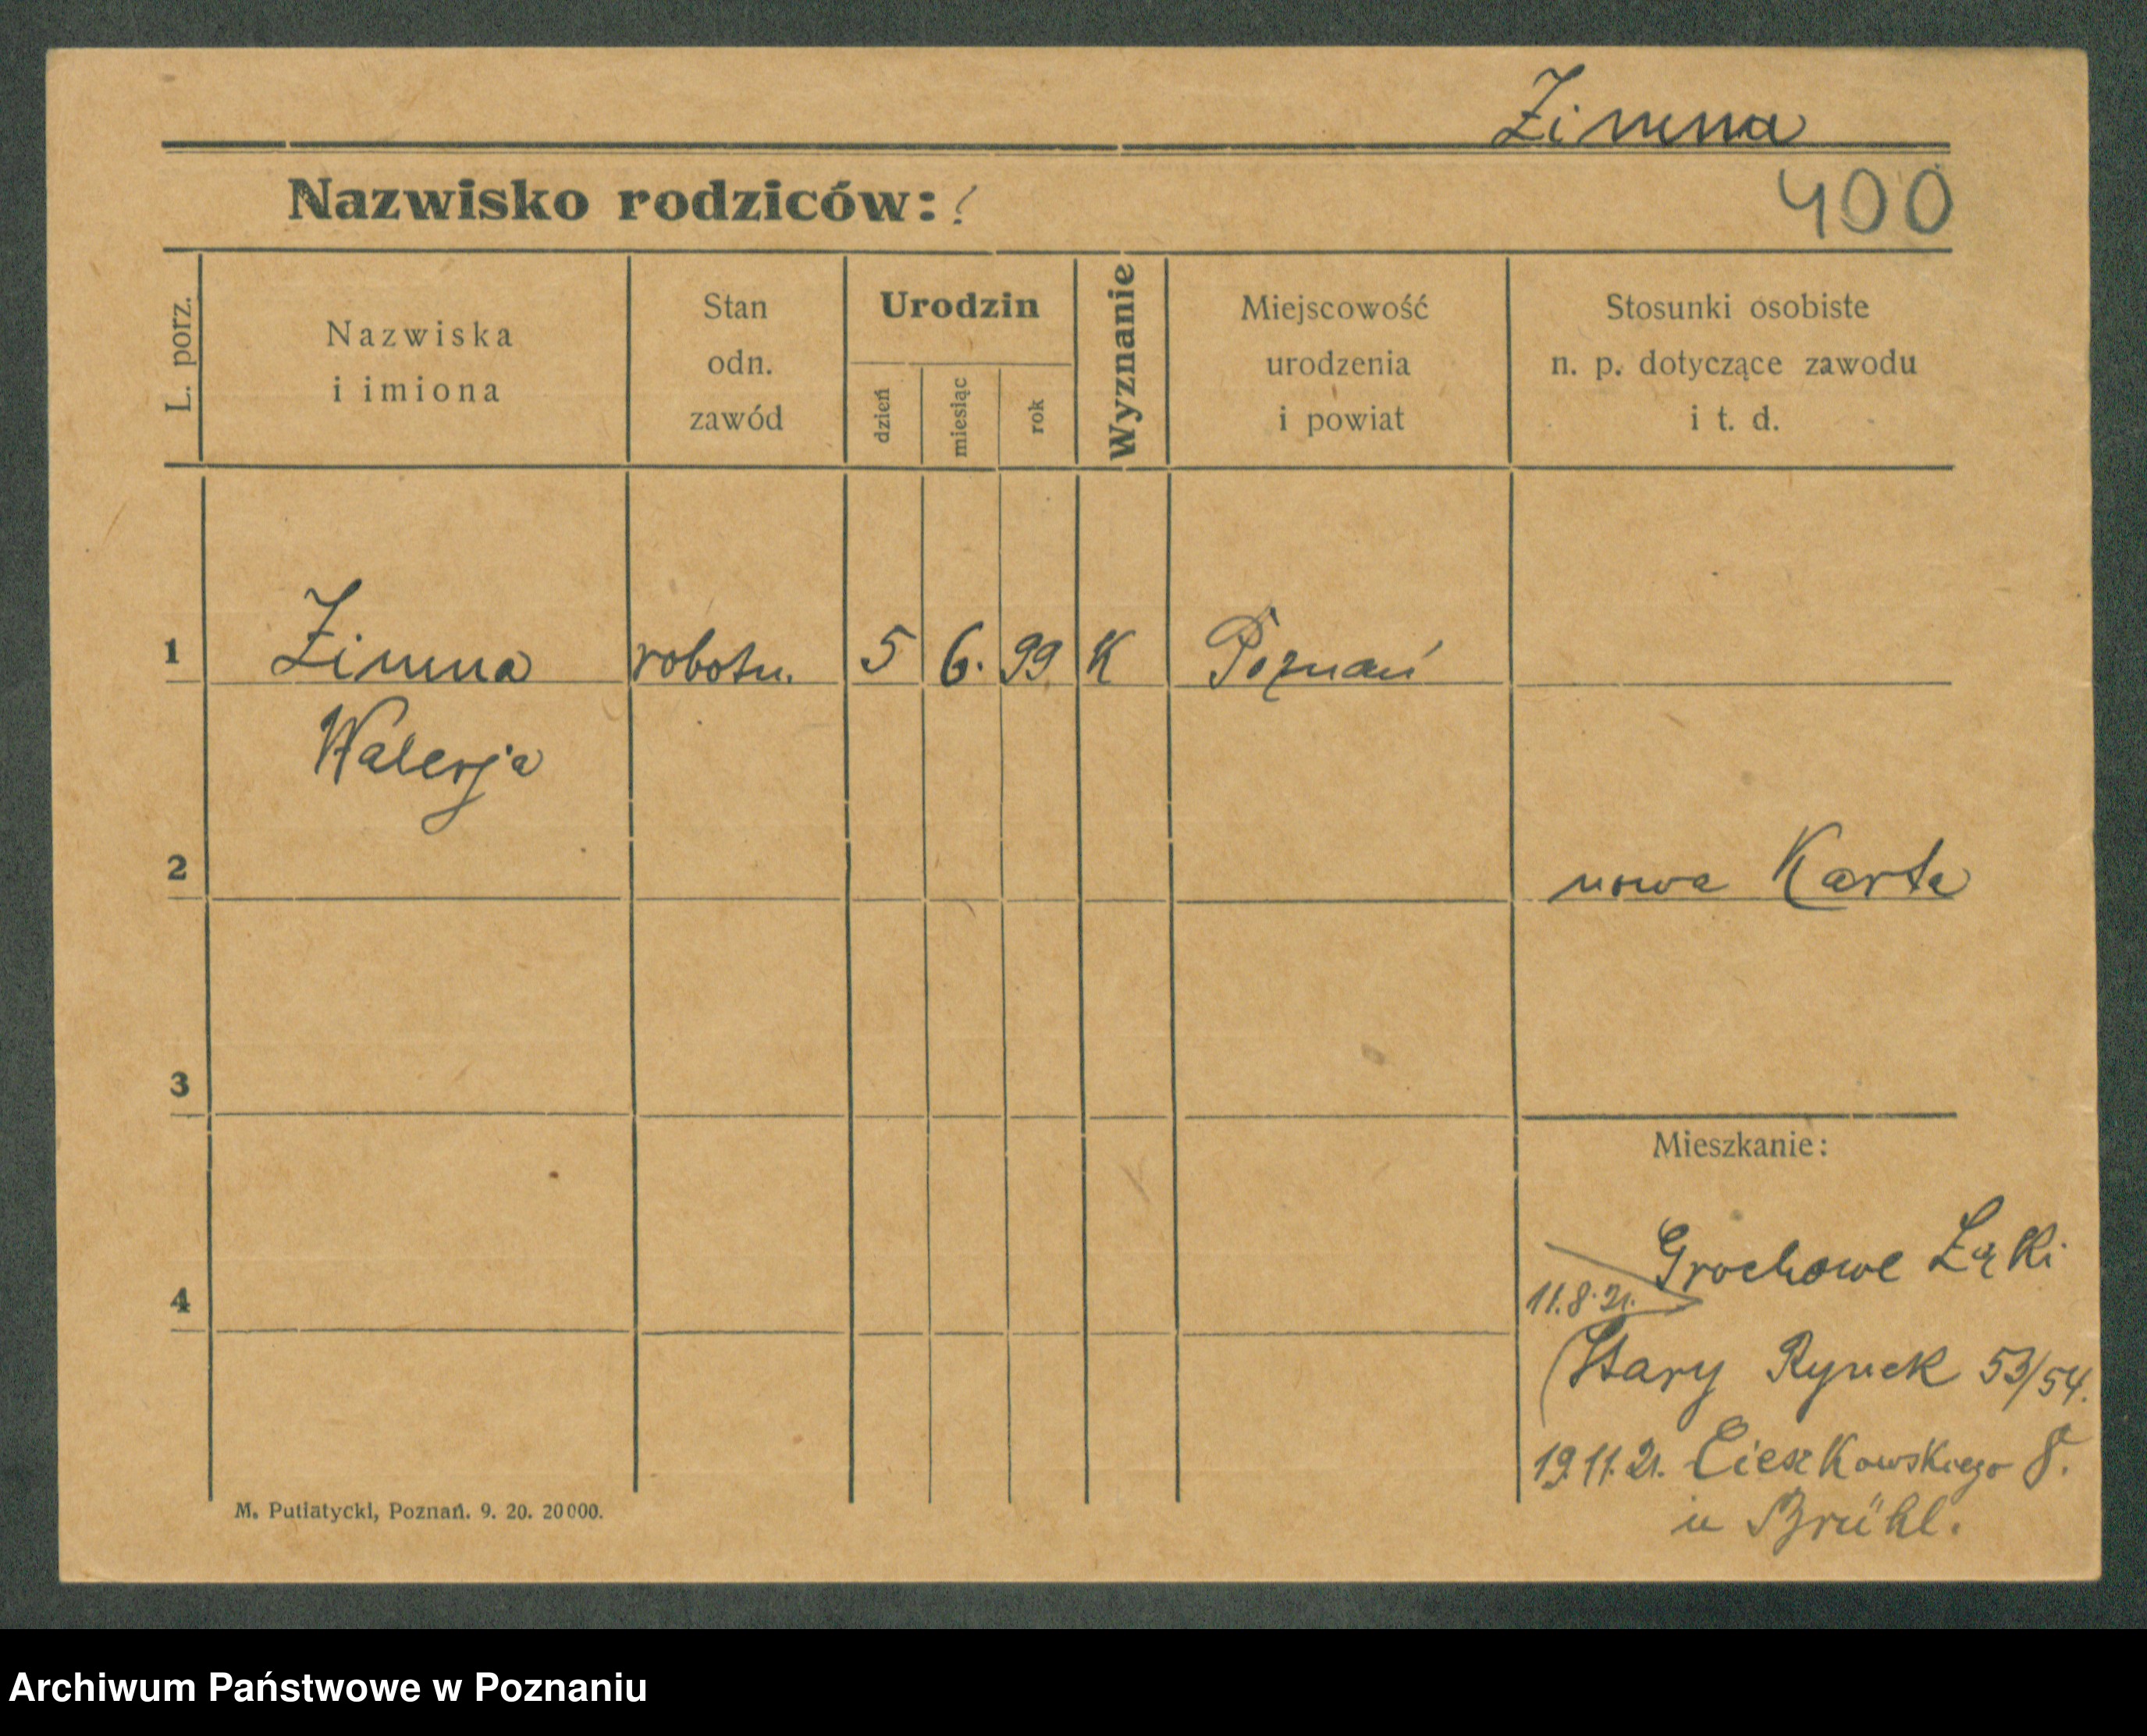 Zimna
Nazwisko rodziców: ?
400
L. porz.
Nazwiska
i imiona
Stan
odn.
zawód
Urodzin
dzień
miesiąc
rok
Wyznanie
Miejscowość
urodzenia
i powiat
Stosunki osobiste
n. p. dotyczące zawodu
i t. d.
1 Zimna robotn. 5 6. 99 K Poznań
Walerja
2 nowa Karta
3
Mieszkanie:
Grochowe Łąki
4 11.8.21.
Stary Rynek 53/54.
19.11.21. Cieszkowskiego 8.
u Brühl.
M. Putiatycki, Poznań. 9. 20. 20000.
Archiwum Państwowe w Poznaniu